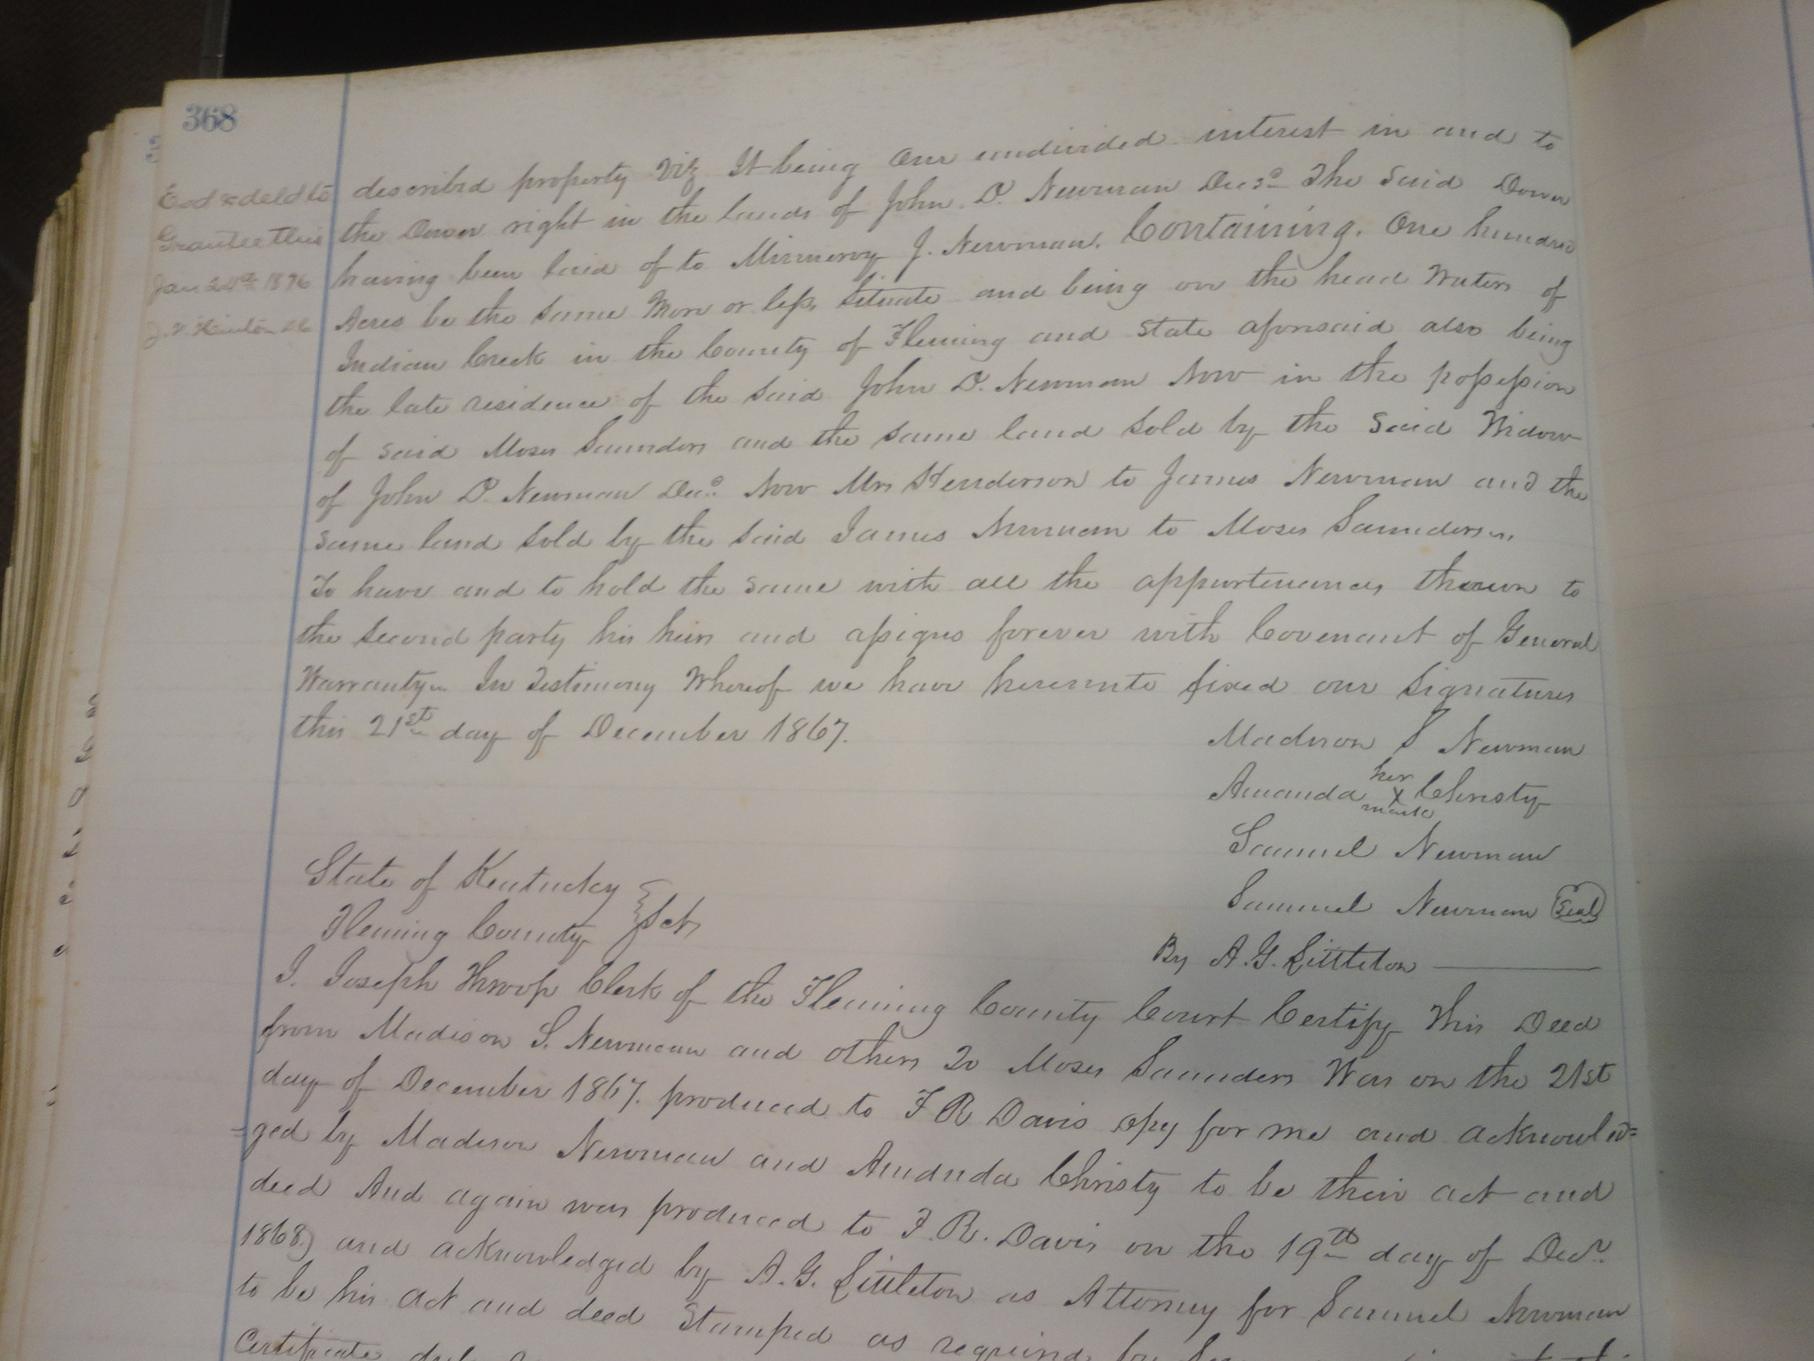 368
described property Viz It being Our undivided interest in and to
the Dower right in the lands of John D. Newman Decsd The said Dower
having been laid of to Minnervy J. Newman. Containing. One hundred
Acres be the same More or less Situate and being on the head Waters of
Indian Creek in the County of Fleming and State aforesaid also being
the late residence of the said John D. Newman Now in the possession
of said Moses Saunders and the same land sold by the said Widow
of John D. Newman Decd Now Mrs Henderson to James Newman and the
same land sold by the said James Newman to Moses Saunders
To have and to hold the same with all the appurtenances thereon to
the second party his heirs and assigns forever with Covenant of General
Warranty In Testimony Whereof we have hereunto fixed our signatures
this 21st day of December 1867.
Exd & deld to
Grantee this
Jan 24th 1876
Madison S Newman
Amanda her x mark Christy
Samuel Newman
Samuel Newman Seal
By A. G. Littleton
State of Kentucky
Fleming County } Sct
I. Joseph Throop Clerk of the Fleming County Court Certify This Deed
from Madison S. Newman and others To Moses Saunders Was on the 21st
day of December 1867. produced to F R Davis dpy for me and acknowled=
=ged by Madison Newman and Amanda Christy to be their act and
deed And again was produced to F. R. Davis on the 19th day of Decr
1868) and acknowledged by A. G. Littleton as Attorney for Samuel Newman
to be his act and deed Stamped as required by
Certificate